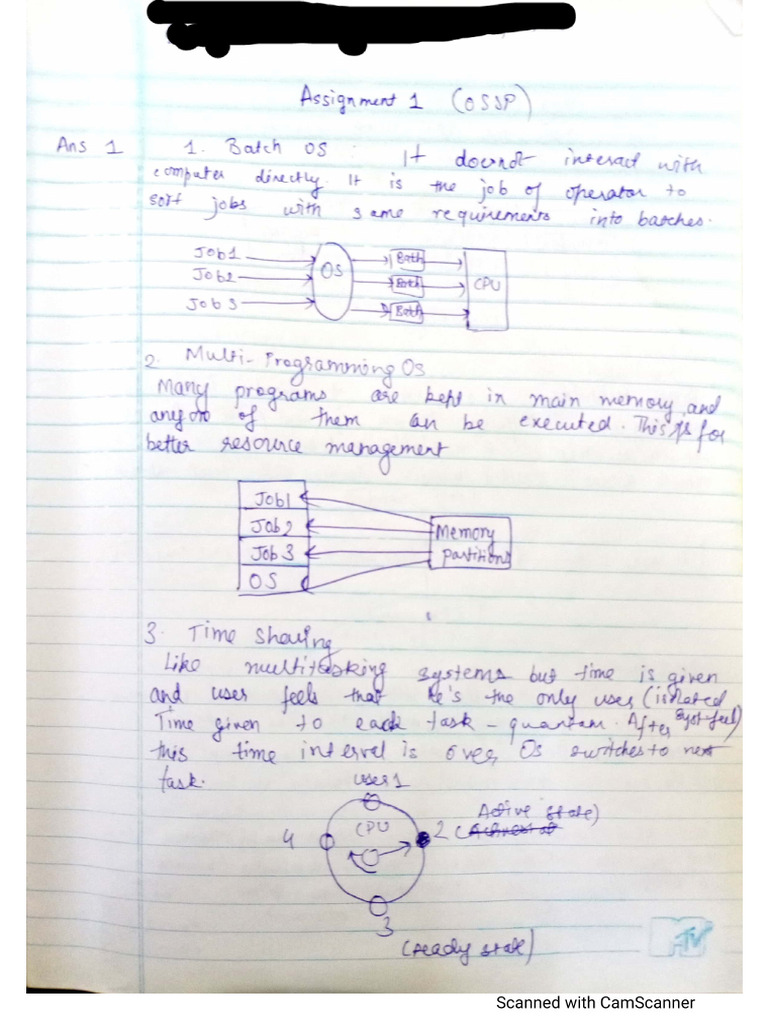 Assignment 1 (OSSP)
Ans 1 1. Batch OS : It doesnot interact with
computer directly. It is the job of operator to
sort jobs with same requirements into batches.
Job1
Job2
Job3
OS
Bath
Bath
Bath
CPU
2. Multi-Programming OS
Many programs are kept in main memory and
any of them can be executed. This is for
better resource management
Job1
Job2
Job3
OS
Memory
partitions
3. Time Sharing
Like multitasking systems but time is given
and user feels that he's the only user (isolated
Time given to each task - quantum. After syst feel)
this time interval is over, OS switches to next
task.
user 1
CPU
4
2 (Active state)
3
(ready state)
MTV
Scanned with CamScanner